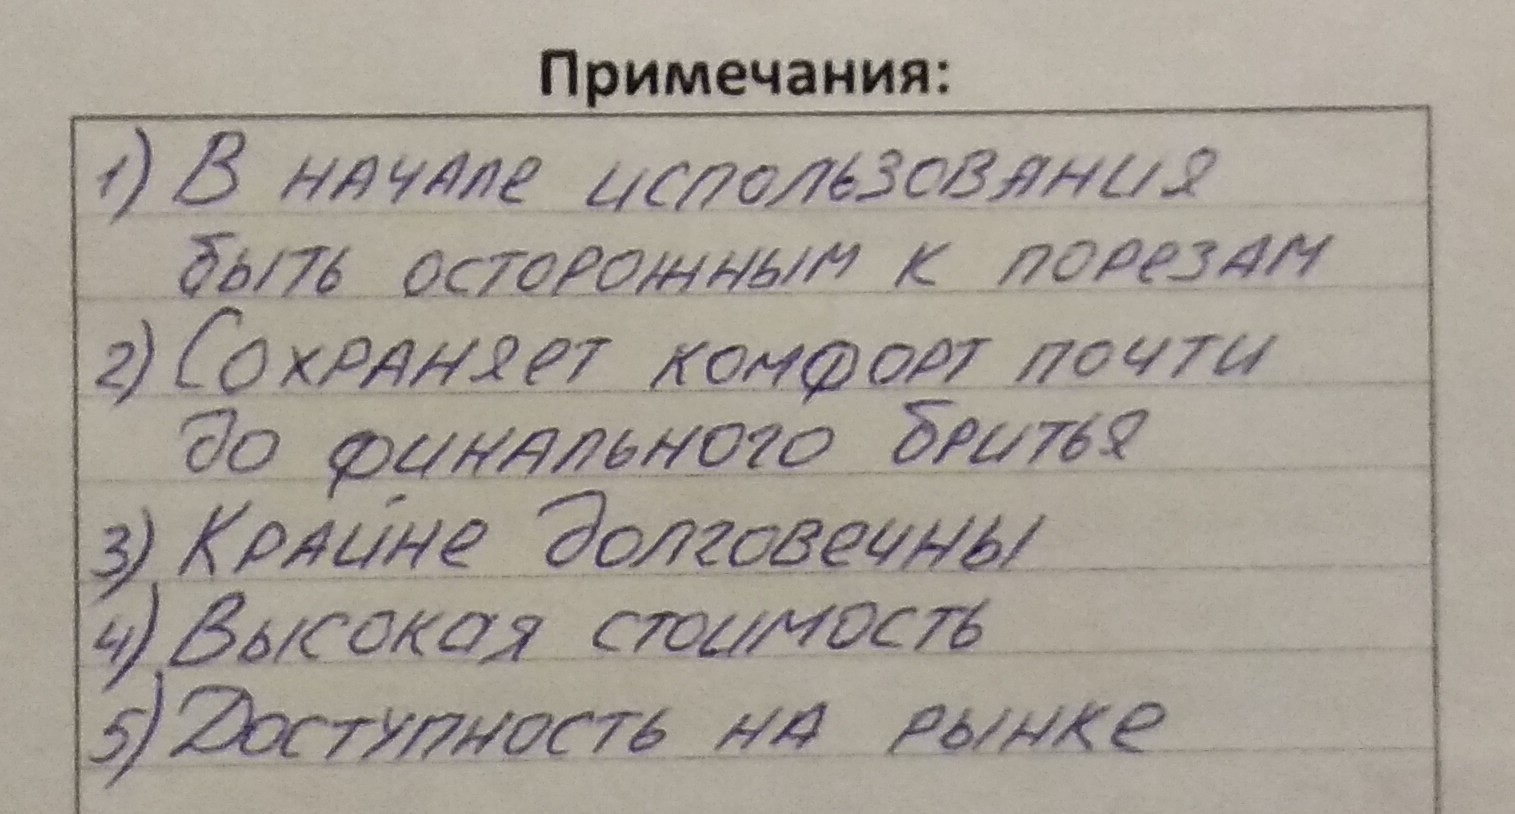 Примечания:
1) В начале использования
быть осторожным к порезам
2) Сохраняет комфорт почти
до финального бритья
3) Крайне долговечны
4) Высокая стоимость
5) Доступность на рынке